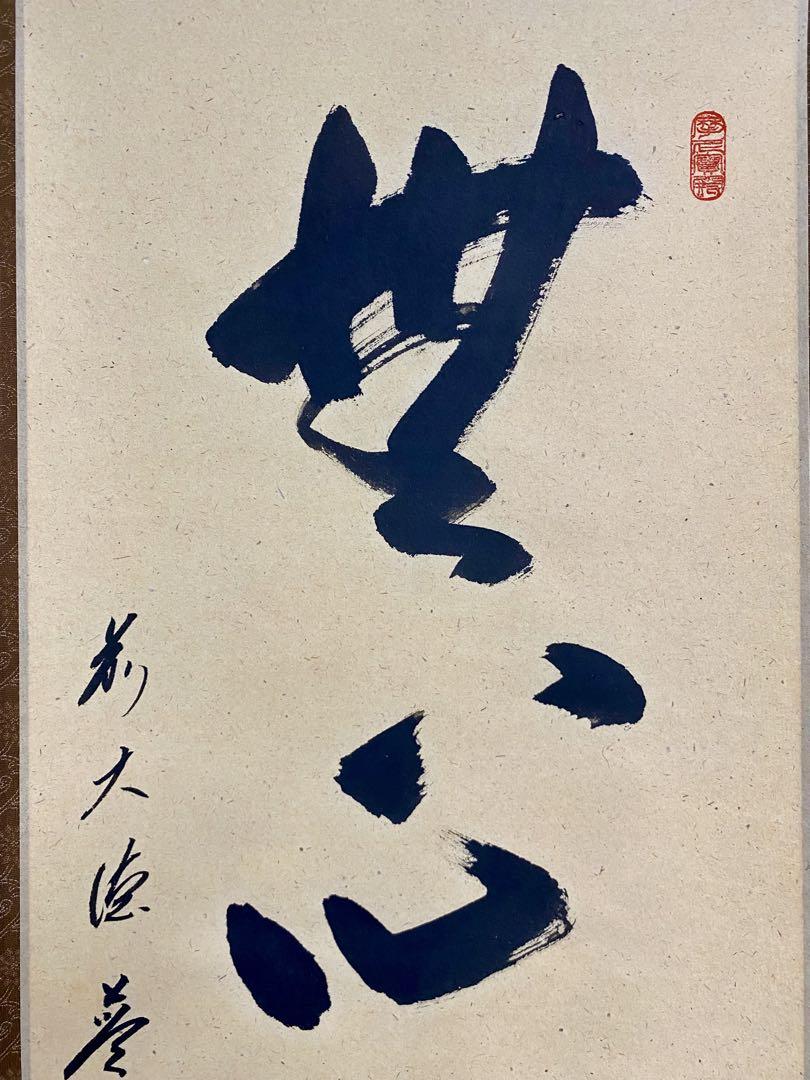 無心
前大徳